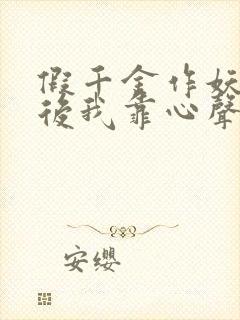 假千金作妖
後我靠心聲
安纓